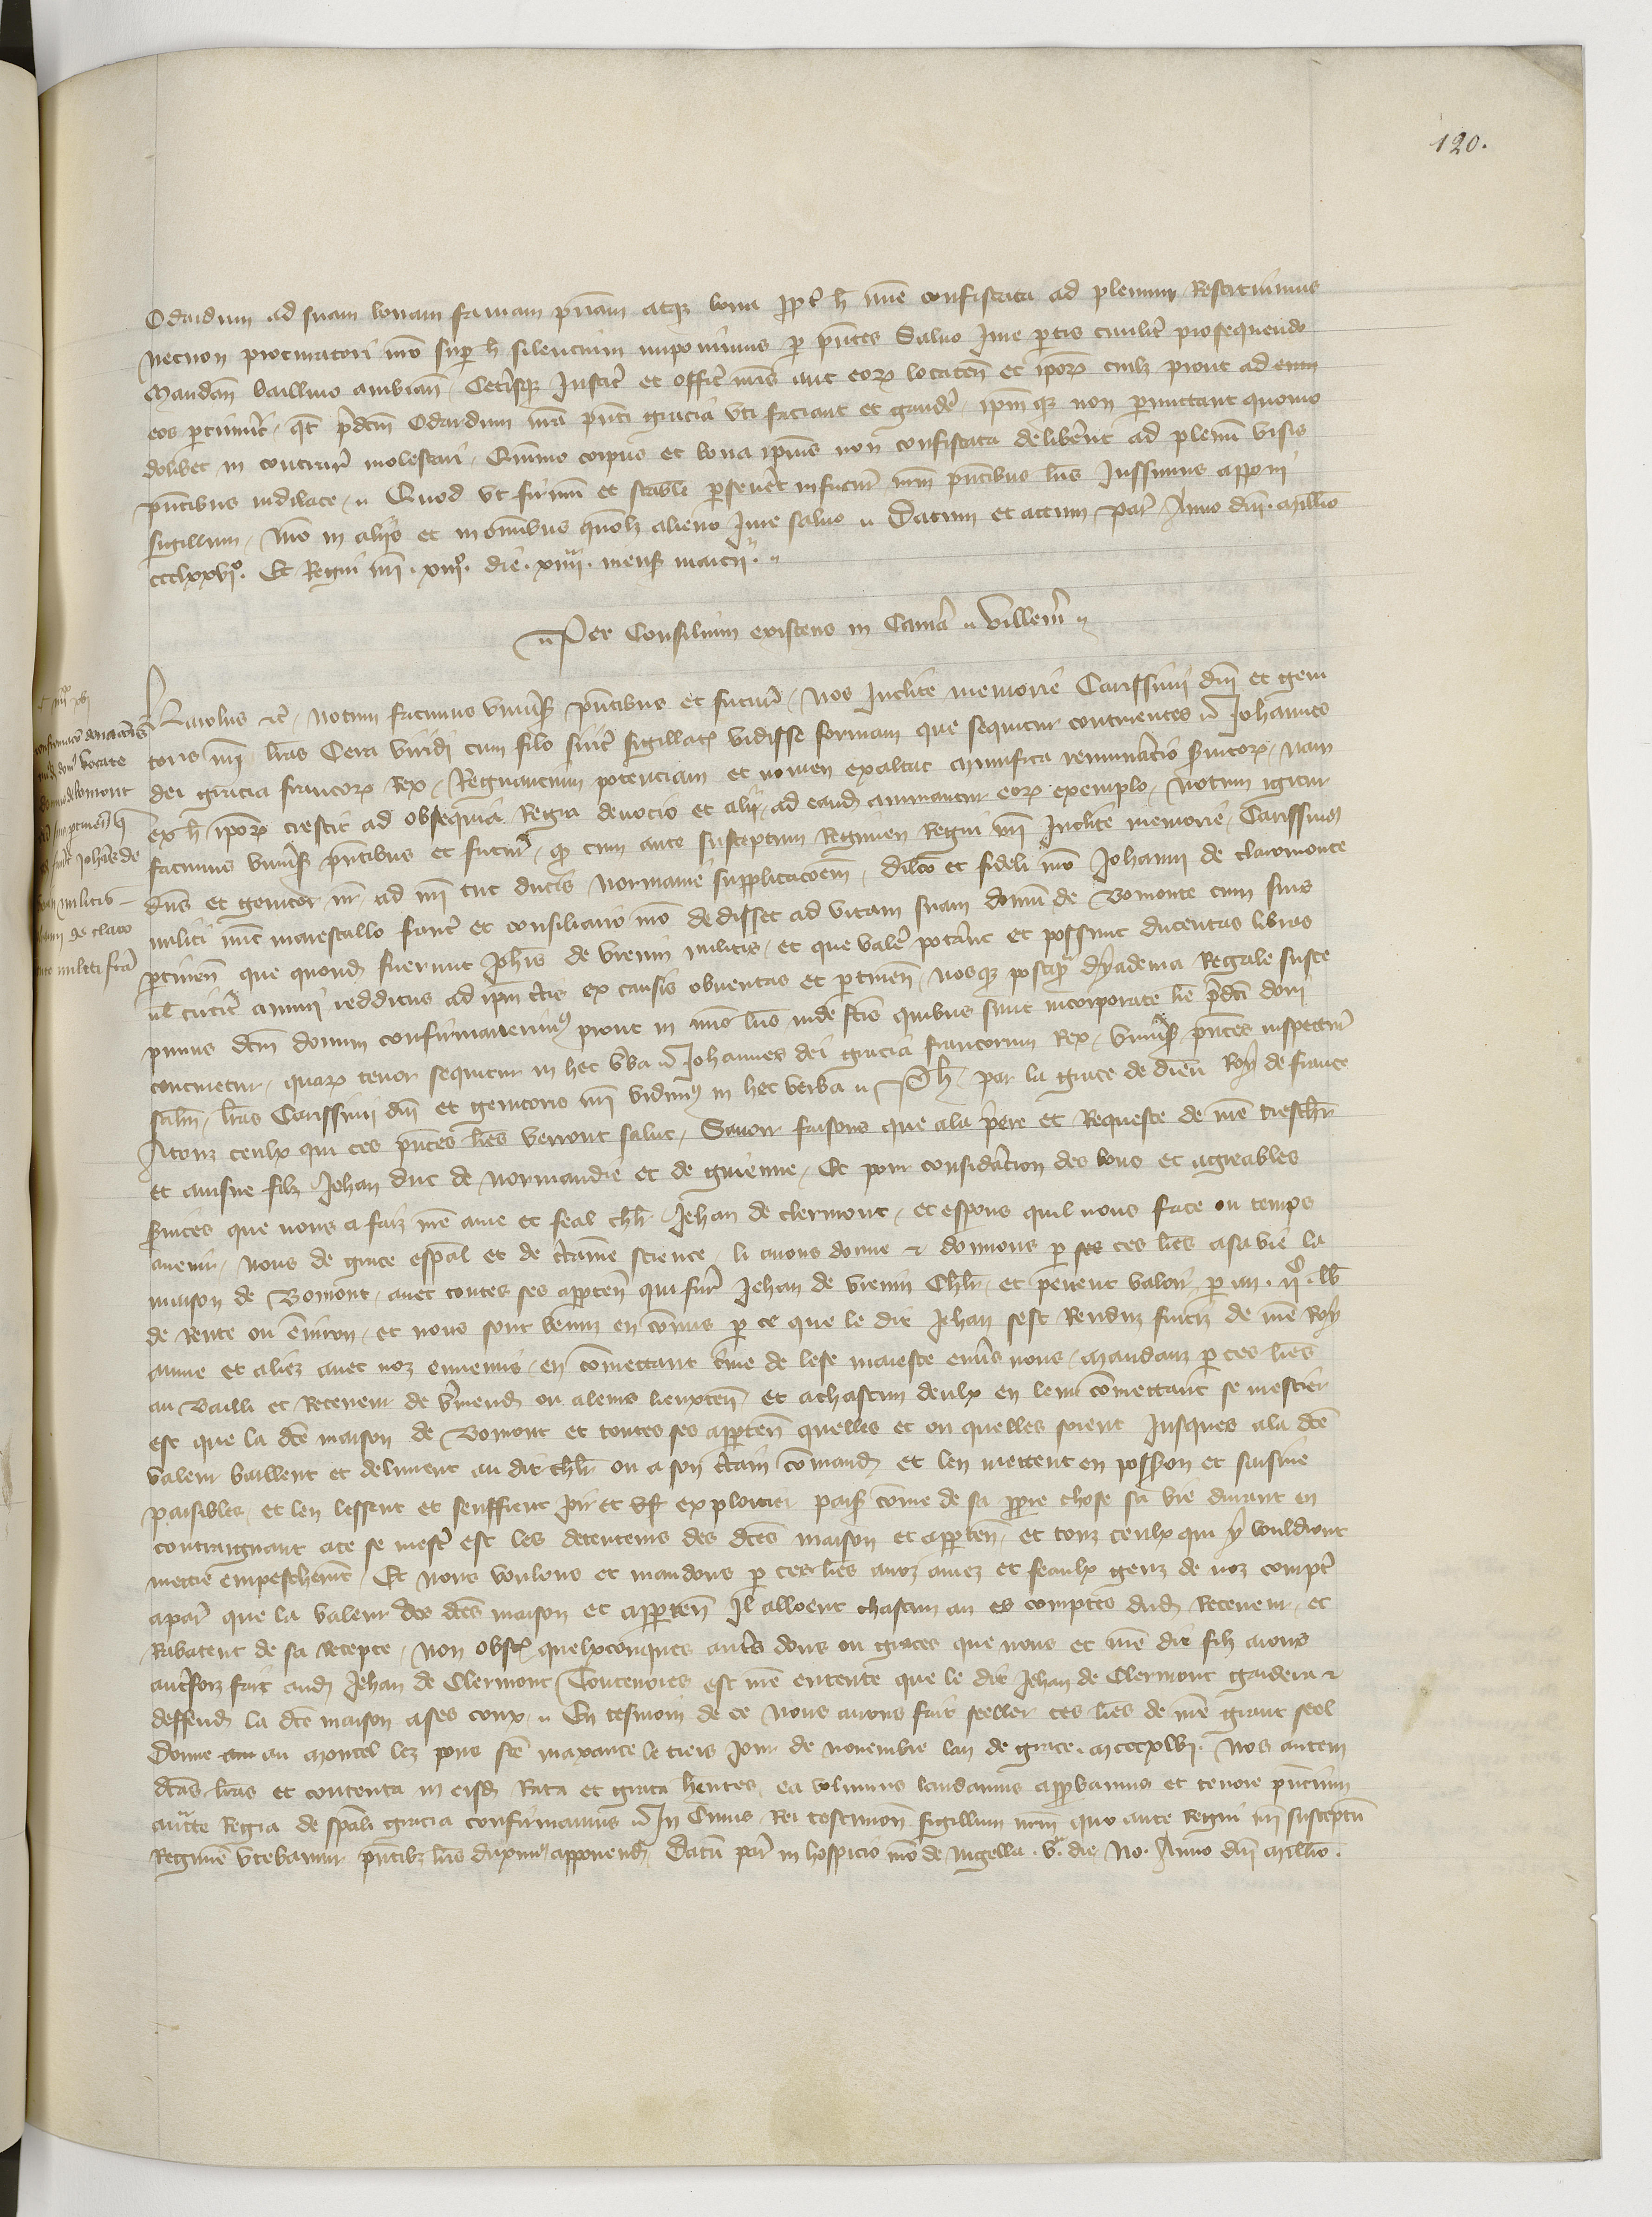 120.
Odardum ad suam bonam famam priam atque bona propter h mie confiscata ad plenum Restituimus
necnon procuratori nro super h silencium imponimus per pntes Salvo Jure partis civiliter prosequendo
Mandan Baillivo ambian Ceterisque Justic et offic nris aut eorum locaten et ipsorum cuilz prout ad eum
eos ptinuit qt pdcm Odardum nra pnti gracia uti faciant et gaudere ipmque non permittant quomo
dolibet in contrarium molestari Quinimo corpus et bona ipsius non confiscata deliberent ad plenu visis
pntibus indilate Quod ut firmu et stabile perseveret in futurum nrm pntibus lris Jussimus apponi
sigillum Nro in aliis et in omibus quolz alieno Jure salvo Datum et actum Par Anno dni millo
ccclxxvio. Et Regni nri xiiio. die. xiiii. mens marcii.
Per Consilium existens in Camera Villem
Karolus etc Notum facimus universis pntibus et futuris Nos Inclite memorie Carissimi dni et geni
toris nri lras Cera viridi cum filo serico sigillatas vidisse formam que sequitur continentes Johannes
dei gracia francorum Rex Regnancium potenciam et nomen exaltat munifica remuneracio servitorum Nam
ex h ipsorum crescit ad obsequia Regia devocio et alii ad eand animantur eorum exemplo Notum igitur
facimus universis pntibus et futuris que cum ante susceptum Regimen Regni nri Inclite memorie Carissimus
dns et genitor nr ad nri tuc ducis Normanie supplicacoem dilco et fideli nro Johanni de claromonte
militi nuc marescallo franc et consiliario nro dedisset ad vitam suam domu de Bomonte cum suis
ptinen que quond fuerunt Johis de Vrevin militis et que valere poterant et possunt ducentas libras
vel circiter annui redditus ad ipm ctis ex causis obventas et ptinen Nosque postquam dyadema Regale susce
pimus dcm donum confirmaverimus prout in nris lris inde fcis quibus sunt incorporate lre pdci doni
continetur quarum tenor sequitur in hec verba Johannes dei gracia francorum Rex Universis pntes inspectur
salm lras Carissimi dni et genitoris nri vidimus in hec verba Ph par la grace de dieu Roy de france
Atouz ceulx qui ces pntes lres verront salut Savoir faisons que ala priere et Requeste de nre treschr
et ainsne filz Jehan duc de Normandie et de guienne Et pour consideracion des bons et agreables
services que nous a faiz nre ame et feal chlr Jehan de clermont et espons quil nous face ou temps
avenir nous de grace espal et de certaine science li avons donne et donnons par ces lres asa vie la
maison de Bomont avec toutes ses apparten qui fur Jehan de Vrevin Chlr et peuent valoir par an. iic. lb
de rente ou environ et nous sont venuz en comis par ce que le dit Jehan sest Renduz fuitiz de nre Roy
aume et aliez avec noz ennemis en comettant crime de lese maieste envers nous Mandanz par ces lres
au Bailli et Receveur de Vermend ou aleurs lieuxten et achascun deulx en leur comettant se mestier
est que la dce maison de Bomont et toutes ses apparten quelles et ou quelles soient Jusques ala dce
valeur baillent et delivrent au dit chlr ou a son certain comand et len mettent en possession et saisine
paisibles et len lessent et seuffrent joir et user exploitier paisiblement come de sa propre chose sa vie durant en
contraignant ace se mestier est les detenteurs des dces maison et apparten et touz ceulx qui y vouldront
mettre empeschement Et nous voulons et mandons par ces lres anoz amez et feaulx genz de noz comptes
apar que la valeur des dces maison et apparten Il alloent chascun an es comptes dud Receveur et
Rabatent de sa Recepte Non obst quelxconques autres dons ou graces que nous et nre dit filz avons
autrefoiz fait aud Jehan de Clermont Toutevoies est nre entente que le dit Jehan de Clermont gardera et
deffend la dce maison a ses coux En tesmoin de ce nous avons fait seeller ces lres de nre grant seel
Donne au Moncel lez pons ste maxance le tiers Jour de novembre lan de grace. mcccxlvi. Nos autem
dcas lras et contenta in eisd Rata et grata hentes ea volumus laudamus approbamus et tenore pntium
aucte Regia de spali gracia confirmamus In Cuius Rei testimon sigillum nrm quo ante Regni nri susceptu
Regimen utebamur pntibz lris duximus apponend Datu par in hospicio nro de Nigella. v. die No. Anno dni millo.
confirmaco donaconis
domus vocate
Bomont
cum ptinen
Johis de
militis
de claro
monte militi